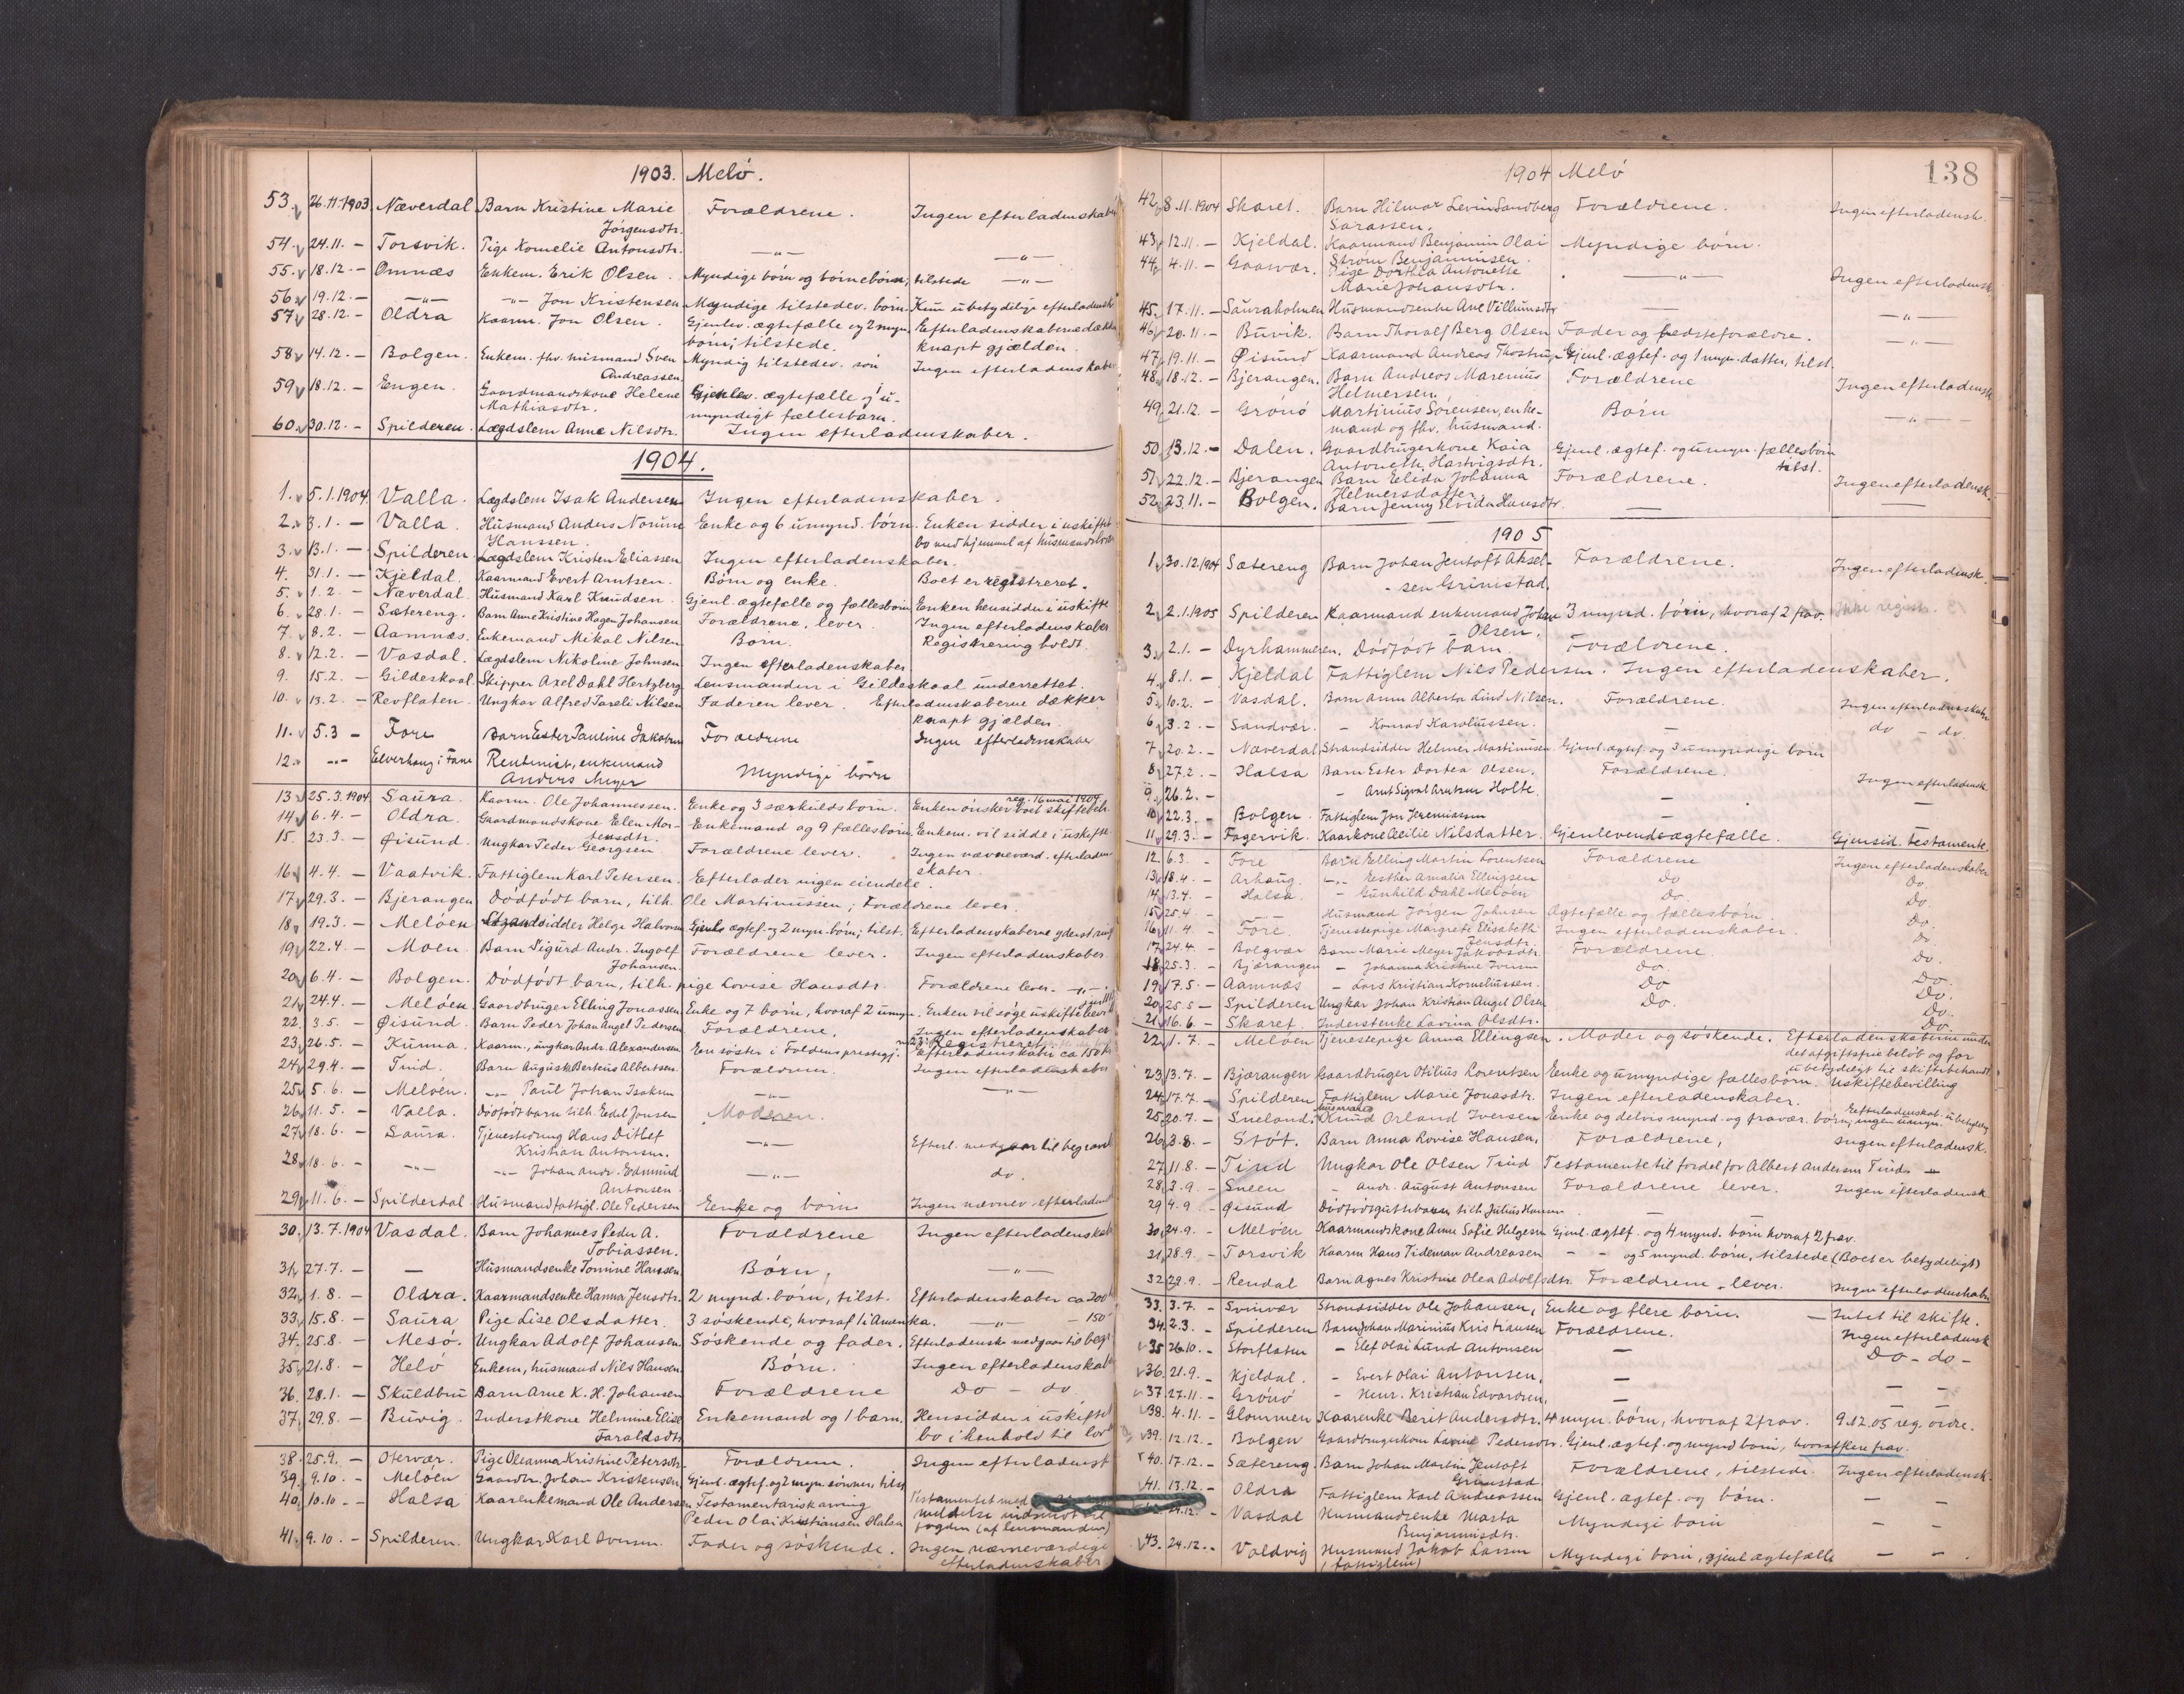 1903. Melö.
53. 26.11.1903 Næverdal Barn Kristine Marie Forældrene. Ingen efterladenskaber
Jörgensdtr.
54. 24.11. — Torsvik. Pige Kornelie Antonsdtr. —„— —„—
55. 18.12. — Omnæs Enkem. Erik Olsen. Myndige börn og börnebörn; tilstede —„—
56. 19.12. — —„— —„— Jon Kristensen Myndige tilstedev. börn. Kun ubetydelige efterladensk
57. 28.12. — Oldra Kaarm. Jon Olsen. Gjenlev. ægtefælle og 2 myn. Efterladenskaberne dækker
börn; tilstede. knapt gjælden.
58. 14.12. — Bolgen. Enkem. fhv. husmand Sven Myndig tilstedev. sön Ingen efterladenskaber
Andreassen.
59. 18.12. — Engen. Gaardmandskone Helene Gjenlev. ægtefælle og 1 u-
Mathiasdtr. myndigt fællesbarn.
60. 30.12. — Spilderen. Lægdslem Anne Nilsdtr. Ingen efterladenskaber.
1904.
1. 5.1.1904 Valla. Lægdslem Isak Andersen Ingen efterladenskaber.
2. 3.1. — Valla. Husmand Anders Norum Enke og 6 umynd. börn. Enken sidder i uskiftet
Hanssen. bo med hjemmel af husmandsloven
3. 13.1. — Spilderen Lægdslem Kristen Eliassen Ingen efterladenskaber.
4. 31.1. — Kjeldal. Kaarmand Evert Arntsen. Börn og enke. Boet er registreret.
5. 1.2. — Næverdal. Husmand Karl Knudsen. Gjenl. ægtefælle og fællesbörn Enken hensidder i uskifte
6. 28.1. — Sætereng. Barn Anne Kristine Hagen Johansen Forældrene, lever. Ingen efterladenskaber
7. 8.2. — Aamnæs. Enkemand Mikal Nilsen Börn. Registrering holdt.
8. 12.2. — Vasdal. Lægdslem Nikoline Johnsen Ingen efterladenskaber.
9. 15.2. — Gildeskaal Skipper Axel Dahl Hertzberg Lensmanden i Gildeskaal underrettet.
10. 13.2. — Revflaten. Ungkar Alfred Sareli Nilsen Faderen lever. Efterladenskaberne dækker
knapt gjælden.
11. 5.3 — Fore Barn Ester Pauline Jakobsen Forældrene Ingen efterladenskaber
12. —„— Elverhaug i Fane Rentenist, enkemand Myndige börn
Anders Meyer
13. 25.3.1904 Saura. Kaarm. Ole Johannessen. Enke og 3 særkuldsbörn. reg. 16 mai 1904 Enken önsker boet skiftebeh.
14. 6.4. — Oldra. Gaardmandskone Elen Mor- Enkemand og 9 fællesbörn. Enkem. vil sidde i uskifte
tensdtr.
15. 23.3. — Øisund. Ungkar Peder Georgsen Forældrene lever. Ingen nævneværd. efterladen-
skaber.
16. 4.4. — Vaatvik. Fattiglem Karl Petersen. Efterlader ingen eiendele.
17. 29.3. — Bjerangen Dödfödt barn, tilh. Ole Martinussen; Forældrene lever.
18. 19.3. — Melöen Strandsidder Helge Halvorsen Gjenl. ægtef. og 2 myn. börn; tilst. Efterladenskaberne yderst ring
19. 22.4. — Moen. Barn Sigurd Andr. Ingolf Forældrene lever. Ingen efterladenskaber.
Johansen.
20. 6.4. — Bolgen. Dödfödt barn, tilh. pige Lovise Hansdtr. Forældrene lever. —„—
21. 24.4. — Melöen Gaardbruger Elling Jonassen Enke og 7 börn, hvoraf 2 umyn. Enken vil söge uskiftebevil
22. 3.5. — Øisund. Barn Peder Johan Angel Pedersen Forældrene. Ingen efterladenskaber
23. 26.5. — Kunna. Kaarm., ungkar Andr. Alexandersen En söster i Foldens prestegj. Registreret. Efterladenskaber ca 150 kr
24. 29.4. — Tind. Barn August Berteus Albertsen. Forældrene. Ingen efterladenskaber
25. 5.6. — Melöen. —„— Paul Johan Isaksen —„— —„—
26. 11.5. — Valla. Dödfödt barn tilh. Eedel Jonsen Moderen.
27. 18.6. — Saura. Tjenestedreng Hans Ditlef —„— Efterl. medgaar til begravel
Kristian Antonsen.
28. 18.6. — —„— —„— Johan Andr. Edmund —„— do.
Antonsen.
29. 11.6. — Spilderdal Husmand fattigl. Ole Pedersen Enke og börn Ingen nævnev. efterladensk
30. 13.7.1904 Vasdal. Barn Johannes Peder A. Forældrene Ingen efterladenskab
Tobiassen.
31. 27.7. — — Husmandsenke Tomine Hansen. Börn. —„—
32. 1.8. — Oldra. Kaarmandsenke Hanna Jensdtr. 2 mynd. börn, tilst. Efterladenskaber ca 200
33. 15.8. — Saura Pige Lise Olsdatter. 3 söskende, hvoraf 1 i Amerika. —„— — 150
34. 25.8. — Mesö. Ungkar Adolf Johansen. Söskende og fader. Efterladensk. medgaar til begr
35. 21.8. — Helö Enkem., husmand Nils Hansen. Börn. Ingen efterladenskab
36. 28.1. — Skuldbru Barn Arne K. H. Johansen Forældrene Do — do
37. 29.8. — Buvig. Inderstkone Helmine Elise Enkemand og 1 barn. Hensidder i uskiftet
Faraldsdtr. bo i henhold til lov
38. 25.9. — Otervær. Pige Oleanna Kristine Petersdtr. Forældrene. Ingen efterladensk
39. 9.10. — Melöen Gaardbr. Johan Kristensen Gjenl. ægtef. og 2 myn. sönner, tilst
40. 10.10. — Halsa Kaarenkemand Ole Andersen Testamentarisk arving Testamentet med
Peder Olai Kristiansen Halsa meldelse indsendt til
fogden (af lensmanden)
41. 9.10. — Spilderen. Ungkar Karl Iversen. Fader og söskende. Ingen nævneværdige
efterladenskaber
1904 Melö 138
42. 8.11.1904 Skaret. Barn Hilmar Levin Sandberg Forældrene. Ingen efterladensk.
Sarassen.
43. 12.11. — Kjeldal. Kaarmand Benjamin Olai Myndige börn.
Ström Benjaminsen.
44. 4.11. — Gaasvær. Pige Dorthea Antonette —„— Ingen efterladensk.
Marie Johansdtr.
45. 17.11. — Sauraholmen Husmandsenke Ane Villumsdtr — —„—
46. 20.11. — Buvik. Barn Thoralf Berg Olsen Fader og bedsteforældre. —„—
47. 19.11. — Øisund Kaarmand Andreas Thostrup Gjenl. ægtef. og 1 myn. datter, tilst.
48. 18.12. — Bjerangen. Barn Andreas Marenius Forældrene Ingen efterladensk
Helmersen.
49. 21.12. — Grönö Martinus Sörensen, enke- Börn —„—
mand og fhv. husmand.
50. 13.12. — Dalen. Gaardbrugerkone Kaia Gjenl. ægtef. og umyn. fællesbörn
Antonette Hartvigsdtr. tilst.
51. 22.12. — Bjerangen Barn Elida Johanna Forældrene. Ingen efterladensk.
Helmersdatter.
52. 23.11. — Bolgen. Barn Jenny Elvida Hansdtr. — —
1905
1. 30.12.1904 Sætereng Barn Johan Jentoft Aksel- Forældrene. Ingen efterladensk.
sen Grimstad.
2. 2.1.1905 Spilderen Kaarmand enkemand Johan 3 mynd. börn, hvoraf 2 frav. Ikke registr.
Olsen.
3. 2.1. — Dyrhammeren. Dödfödt barn Forældrene.
4. 8.1. — Kjeldal Fattiglem Nils Pedersen. Ingen efterladenskaber.
5. 10.2. — Vasdal. Barn Anna Alberta Lind Nilsen. Forældrene. Ingen efterladenskaber
6. 3.2. — Sandvær. — Konrad Karolussen. — do — do.
7. 20.2. — Næverdal. Strandsidder Helmer Martinusen Gjenl. ægtef. og 3 umyndige börn
8. 27.2. — Halsa Barn Ester Dortea Olsen. Forældrene. Ingen efterladensk
9. 26.2. — — Arnt Sigval Arntsen Holte. — —
10. 22.3. — Bolgen. Fattiglem Jon Jeremiassen
11. 29.3. — Fagervik. Kaarkone Cecilie Nilsdatter. Gjenlevende ægtefælle. Gjensid. testamente
12. 6.3. — Fore Barn Elling Martin Lorentsen Forældrene Ingen efterladenskaber
13. 18.4. — Arhaug. —„— Eesther Amalia Ellingsen Do Do.
14. 13.4. — Halsa. — Gunhild Dahl Melöen Do Do.
15. 25.4. — — Husmand Jörgen Johnsen Ægtefælle og fællesbörn. Do.
16. 11.4. — Fore. Tjenestepige Margrete Elisabeth Ingen efterladenskaber. Do
Jensdtr.
17. 24.4. — Bolgvær Barn Marie Meyer Jakobsdtr. Forældrene Do.
18. 25.3. — Bjærangen — Johanna Kristine Iversen Do. Do.
19. 17.5. — Aamnæs — Lars Kristian Kornelussen. Do Do.
20. 25.5 — Spilderen Ungkar Johan Kristian Angel Olsen Do. Do.
21. 16.6. — Skaret. Inderstenke Lavina Olsdtr. Do
22. 1.7. — Melöen Tjenestepige Anna Ellingsen. Moder og söskende. Efterladenskaberne under
det afgiftsfrie belöb og for
ubetydeligt til skiftebehandl
23. 13.7. — Bjærangen Gaardbruger Otilius Lorentsen Enke og umyndige fællesbörn. Uskiftebevilling
24. 17.7. — Spilderen Fattiglem Marie Jonasdtr. Ingen efterladenskaber.
25. 20.7. — Sneland. husmand Knud Orland Iversen Enke og delvis mynd. og fravær. börn, ingen umyn. Eefterladenskab. ubetydelig
26. 3.8. — Stöt. Barn Anna Rovise Hansen, Forældrene, Ingen efterladensk.
27. 11.8. — Tind Ungkar Ole Olsen Tind Testamente til fordel for Albert Andersen Tind. —
28. 3.9. — Sneen — Andr. August Antonsen Forældrene lever. Ingen efterladensk
29. 4.9 — Øisund Dödfödt guttebarn tilh Julius Hansen
30. 24.9. — Melöen Kaarmandskone Anne Sofie Helgesen Gjenl. ægtef. og 4 mynd. börn hvoraf 2 frav.
31. 28.9. — Torsvik Kaarm Hans Tideman Andreasen — — og 5 mynd. börn, tilstede (Boet er betydeligt)
32. 29.9. — Rendal Barn Agnes Kristine Olea Adolfsdtr. Forældrene lever. Ingen efterladenskaber
33. 3.7. — Svinvær Strandsidder Ole Johansen, Enke og flere börn. — Intet til skifte.
34. 2.3. — Spilderen Barn Johan Marinius Kristiansen Forældrene. Ingen efterladensk
35. 26.10. — Storflaten — Elef Olai Lund Antonsen — Do — do —
36. 21.9. — Kjeldal. — Evert Olai Antonsen, —
37. 27.11. — Grönö — Henr. Kristian Edvardsen, — — —
38. 4.11. — Glommen Kaarenke Berit Andersdtr. 4 myn. börn, hvoraf 2 frav. 9.12.05 reg. ordre.
39. 12.12. — Bolgen Gaardbrugerkone Lavine Pedersdtr. Gjenl. ægtef. og mynd börn, hvoraf flere frav.
40. 17.12. — Sætereng. Barn Johan Martin Jentoft Forældrene, tilstede. Ingen efterladensk.
Grimstad
41. 13.12. — Oldra Fattiglem Karl Andreassen Gjenl. ægtef. og börn. — —
14.12. — Vasdal Husmandsenke Marta Myndige börn — —
Benjaminsdtr.
43. 24.12. — Valdvig Husmand Jakob Larsen Myndige börn, gjenl ægtefælle — —
(fattiglem)